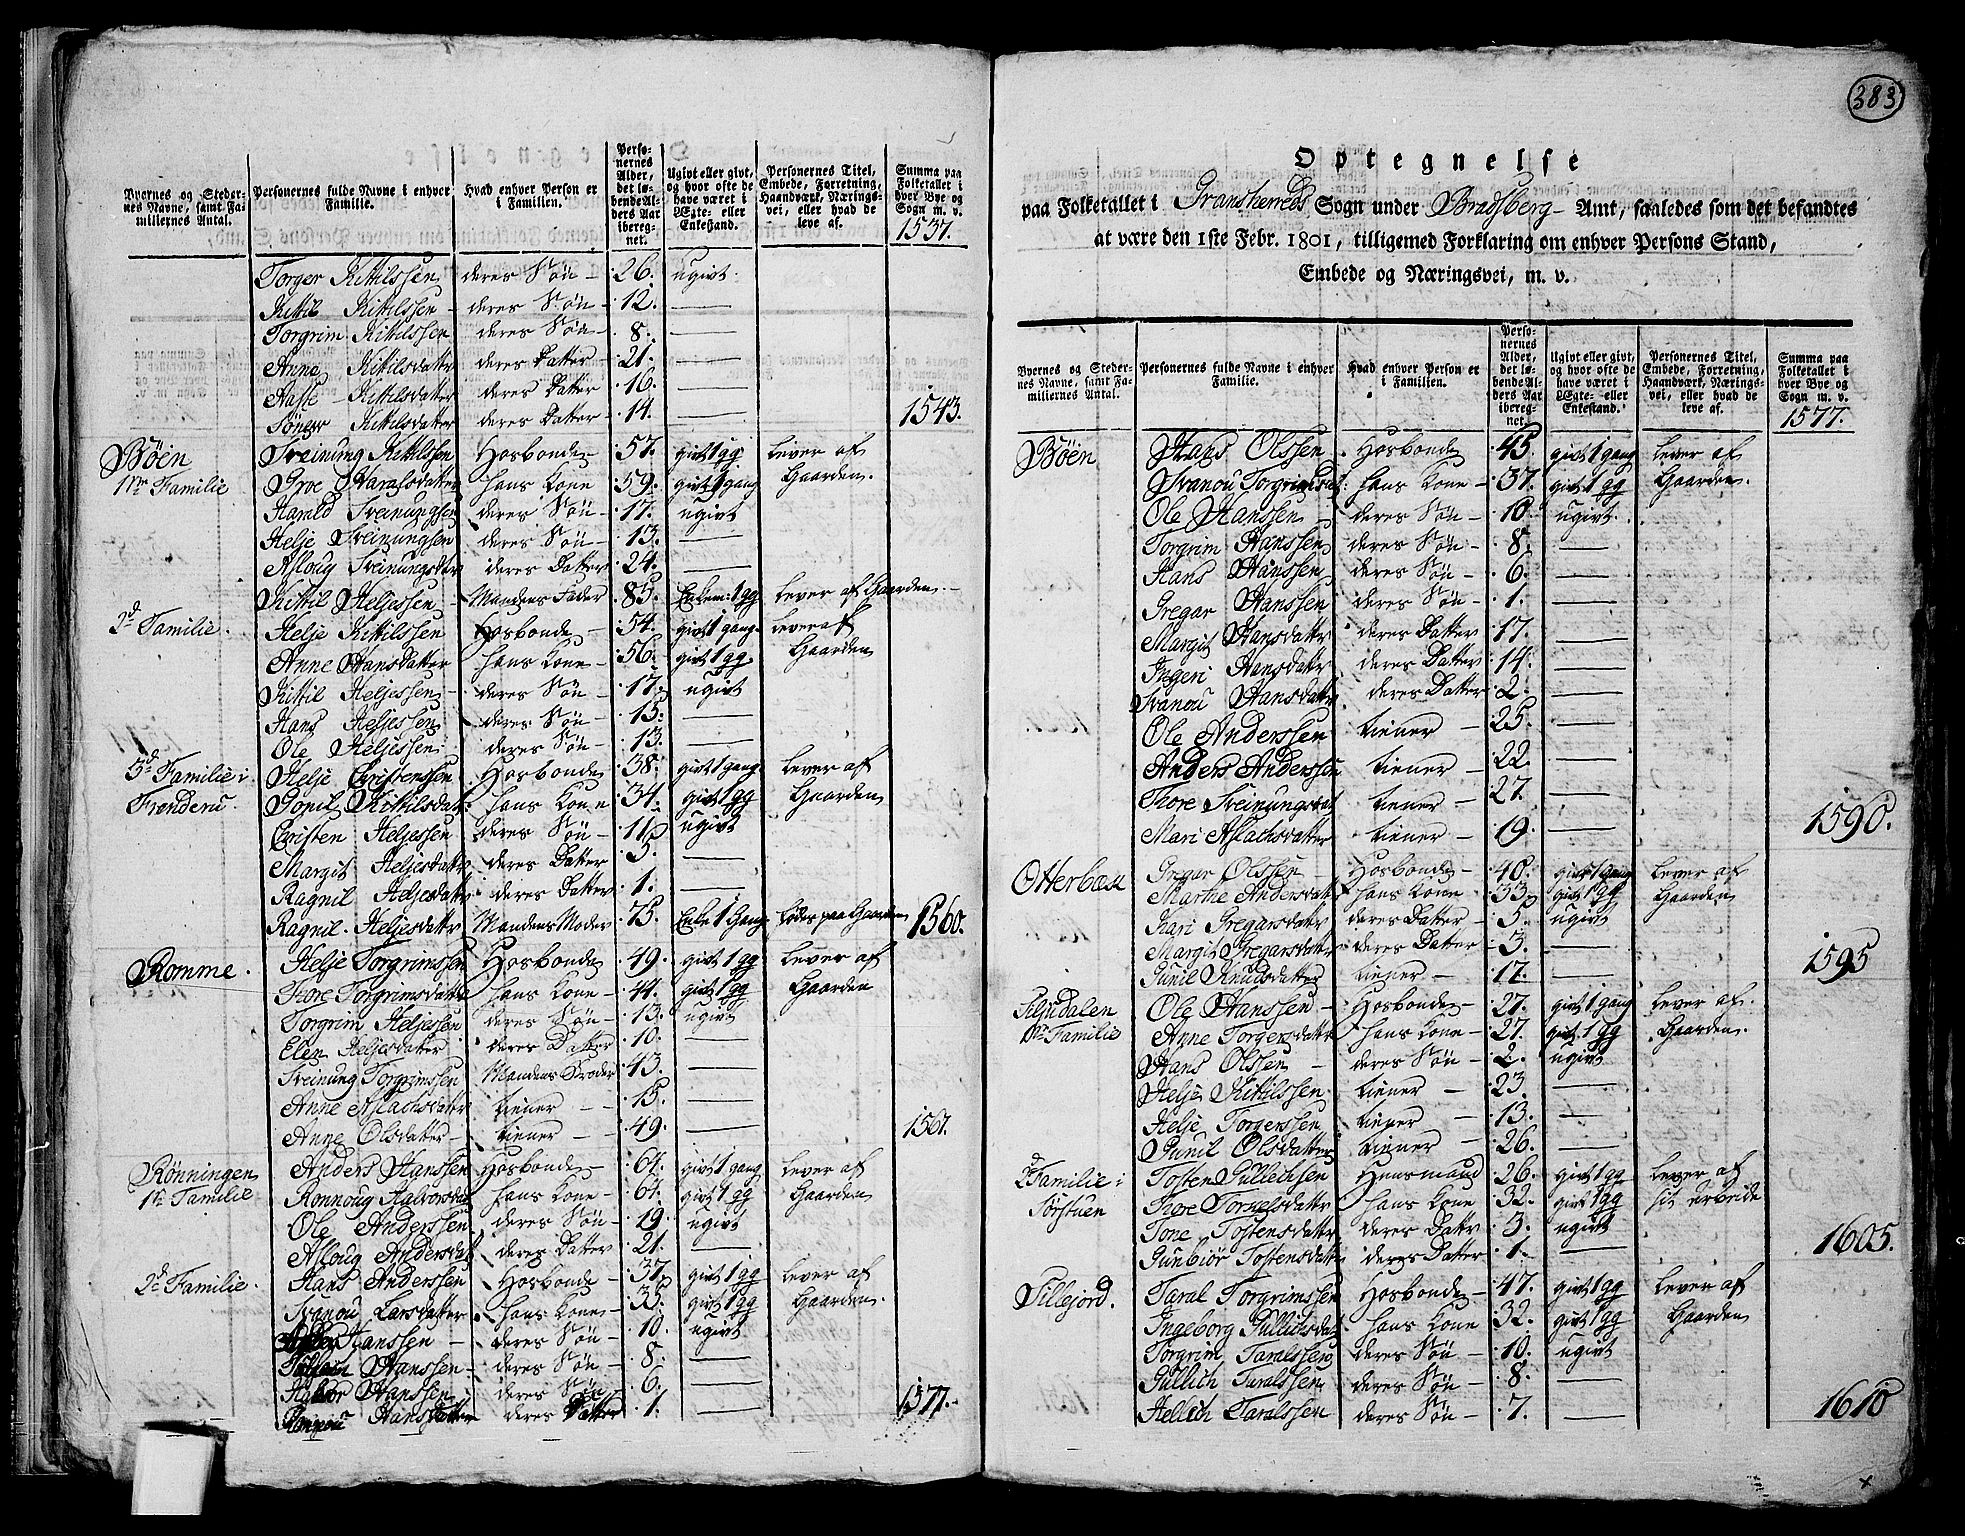 Byernes og Steder-
nes Navne, samt Fa-
miliernes Antal.
Personernes fulde Navne i enhver
Familie.
Hvad enhver Person er
i Familien.
Perso-
nernes
Alder,
det lø-
bende Al-
ders Aar
ibereg-
net.
Ugivt eller givt,
og hvor ofte de
have været i
Ægte- eller
Enkestand.
Personernes Titel,
Embede, Forretning,
Haandværk, Nærings-
vei, eller hvad de
leve af.
Summa paa
Folketallet i
hver Bye og
Sogn m. v.
1537.
Torger Kittilssen deres Søn 26. ugivt
Kittil Kittilssen deres Søn 12. —
Torgrim Kittilssen deres Søn 8. —
Anne Kittilsdatter deres Datter 21. —
Aasse Kittilsdatter deres Datter 16. —
Kittilsdatter deres Datter 14. — 1543.
Bøen Sveinung Kittilssen Hosbonde 57. givt 1 gg Lever af
1te Familie Groe Haralsdatter hans Kone 59. givt 1 gang Gaarden.
Harald Sveinungsen deres Søn 17. ugivt
Helje Sveinungsen deres Søn 13. —
Aslaug Sveinungsdatter deres Datter 24. —
Kittil Heljessen Mandens Fader 85. Enkem. 1 gg Lever af Gaarden.
2d Familie. Helje Kittilssen Hosbonde 54. givt 1 gang Lever af
Anne Hansdatter hans Kone 56. givt 1 gg Gaarden
Kittil Heljessen deres Søn 17. ugivt
Hans Heljessen deres Søn 15. —
Ole Heljessen deres Søn 13. —
3d Familie i Helje Christenssen Hosbonde 38. givt 1 gang Lever af
Gonil Kittilsdatr hans Kone 34. givt 1 gg Gaarden
Christen Heljessen deres Søn 11. ugivt
Margit Heljesdattr deres Datter 5. —
Ragnil Heljesdattr deres Datter 1. —
Ragnil Heljesdattr Mandens Moder 75. Enke 1 Gang Lever paa Gaarden 1560.
Romme. Helje Torgrimssen Hosbonde 49. givt 1 gg Lever af
Tore Torgrimsdatter hans Kone 44. givt 1 gg Gaarden
Torgrim Heljessen deres Søn 13. ugivt
Elen Heljesdatter deres Datter 10. —
Sveinung Torgrimssen Mandens Broder 43. —
Anne Aslachsdatter tiener 15. —
Anne Olsdatter tiener 49. — 1567.
Rønningen Anders Hanssen Hosbonde 61. givt 1 gang Lever af
1te Familie Ronnoug Halvorsdatr hans Kone 61. givt 1 gg Gaarden
Ole Anderssen deres Søn 19. ugivt
Aslaug Andersdatr deres Datter 21. —
2d Familie. Hans Anderssen Hosbonde 37. givt 1 gg Lever af
Svanou Larsdatter hans Kone 35. givt 1 gg Gaarden.
Hanssen deres Søn 10. ugivt
Hanssen deres Søn 8. —
Halvor Hanssen deres Søn 6. —
Hansdatter deres Datter 1. — 1577.
383
Optegnelse
paa Folketallet i Gransherreds Sogn under Bradsberg Amt, saaledes som det befandtes
at være den 1ste Febr. 1801, tilligemed Forklaring om enhver Persons Stand,
Embede og Næringsvei, m. v.
Byernes og Steder-
nes Navne, samt Fa-
miliernes Antal.
Personernes fulde Navne i enhver
Familie.
Hvad enhver Person er
i Familien.
Perso-
nernes
Alder,
det lø-
bende Al-
ders Aar
ibereg-
net.
Ugivt eller givt,
og hvor ofte de
have været i
Ægte- eller
Enkestand.
Personernes Titel,
Embede, Forretning,
Haandværk, Nærings-
vei, eller hvad de
leve af.
Summa paa
Folketallet i
hver Bye og
Sogn m. v.
1577.
Bøen Hans Olssen Hosbonde 45. givt 1 gang Lever af
Svanou Torgrimsdat. hans Kone 37. givt 1 gg Gaarden.
Ole Hanssen deres Søn 10. ugivt.
Torgrim Hanssen deres Søn 8. —
Hans Hanssen deres Søn 6. —
Gregar Hanssen deres Søn 1. —
Margit Hansdattr deres Datter 17. —
Ingeri Hansdattr deres Datter 14. —
Svanou Hansdattr deres Datter 2. —
Ole Anderssen tiener 25. —
Anders Anderssen tiener 22. —
Tore Sveinungsdat tiener 27. —
Mari Aslachsdatter tiener 19. — 1590.
Otterbæk Gregar Olssen Hosbonde 40. givt 1 gang Lever af
Marthe Andersdattr hans Kone 33. givt 1 gg Gaarden
Kari Gregarsdattr deres Datter 5. ugivt
Margit Gregarsdattr deres Datter 3. —
Gunil Knudsdatter tiener 17. — 1595
Ole Hanssen Hosbonde 27. givt 1 gang Lever af
1te Familie Anne Torgersdattr hans Kone 27. givt 1 gg Gaarden.
Hans Olssen deres Søn 2. ugivt
Helje Kittilssen tiener 23. —
Helje Torgerssen tiener 13. —
Gunil Olsdatter tiener 26. —
2d Familie i Tosten Gullichsen Huusmand 26. givt 1 gg Lever af
Tore hans Kone 32. givt 1 gg sit arbeide
Tone Tostensdattr deres Dattr 3. ugivt
Gunbiør Tostensdattr deres Datter 1. — 1605.
Tillejord. Taral Torgrimssen Hosbonde 47. givt 1 gg Lever af
Ingeborg Gullichsdat hans Kone 32. givt 1 gg Gaarden
Torgrim Taralssen deres Søn 10. ugivt
Gullich Taralssen deres Søn 8. —
Hellich Taralssen deres Søn 7. — 1610